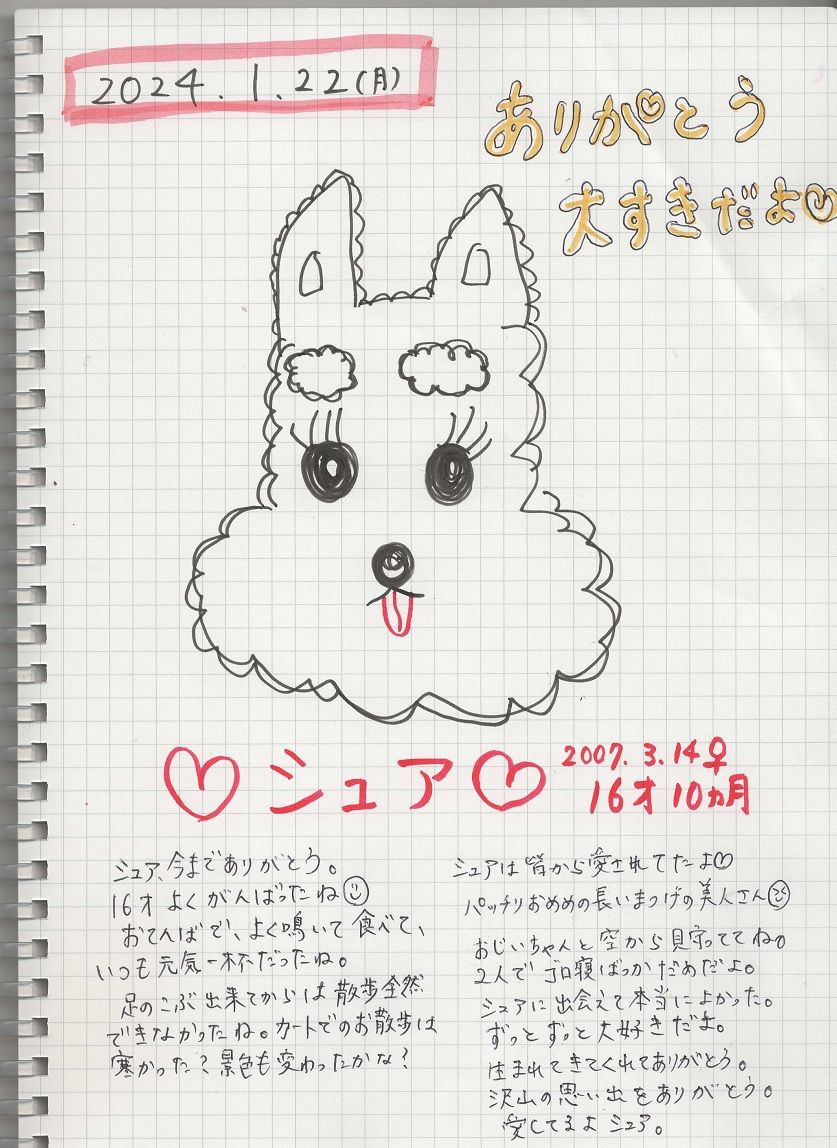 2024.1.22(月)
ありがとう
大すきだよ♡
♡シュア♡
2007.3.14♀
16才10ヵ月
シュア、今までありがとう。
16才よくがんばったね☺
おてんばで、よく鳴いて食べて、
いつも元気一杯だったね。
足のこぶ出来てからは散歩全然
できなかったね。カートでのお散歩は
寒かった?景色も変わったかな?
シュアは皆から愛されてたよ♡
パッチリおめめの長いまつげの美人さん☺
おじいちゃんと空から見守っててね。
2人でゴロ寝ばっかだめだよ。
シュアに出会えて本当によかった。
ずっとずっと大好きだよ。
生まれてきてくれてありがとう。
沢山の思い出をありがとう。
愛してるよシュア。